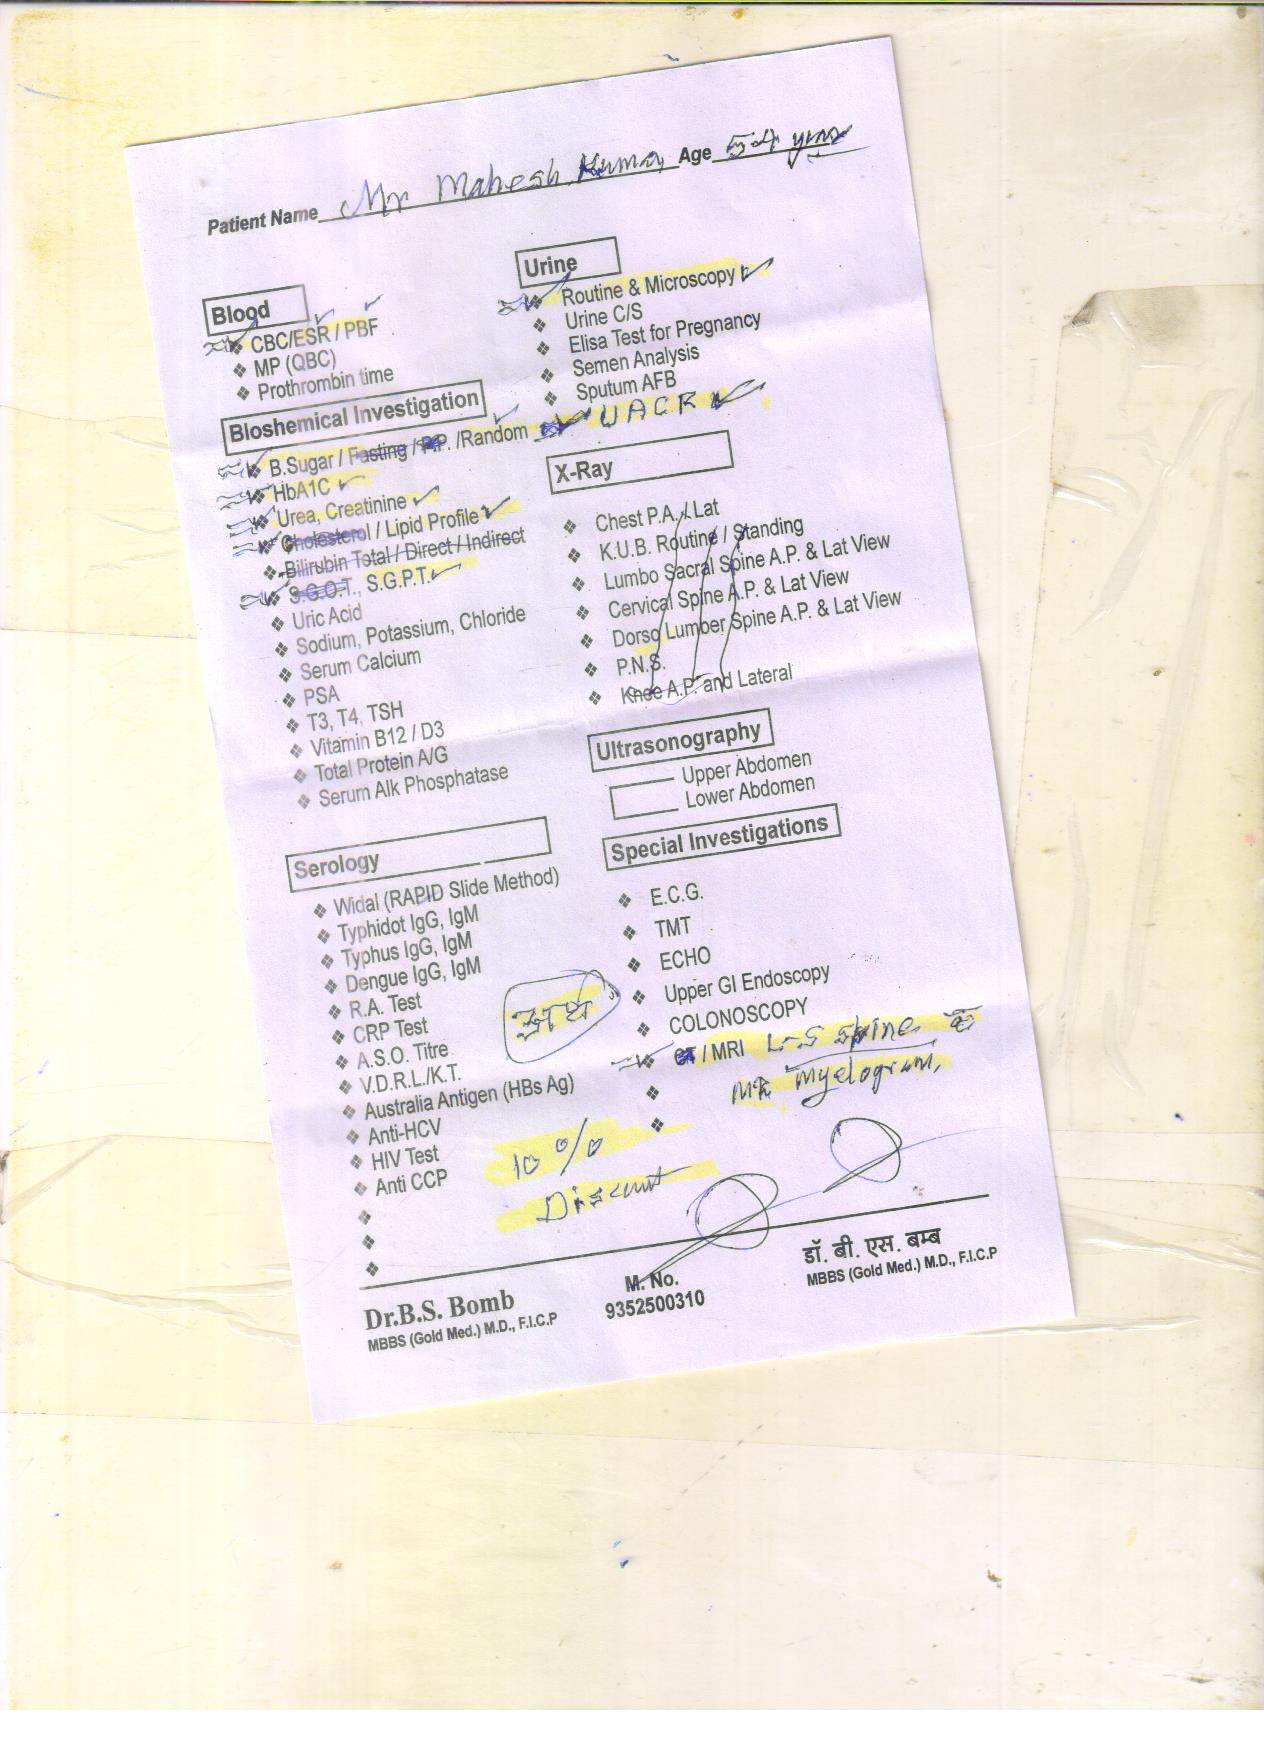 Patient Name Mr Mahesh Kumar Age 54 years
Blood
CBC/ESR / PBF
MP (QBC)
Prothrombin time
Bloshemical Investigation
B.Sugar / Fasting / P.P. /Random
HbA1C
Urea, Creatinine
Cholesterol / Lipid Profile
Bilirubin Total / Direct / Indirect
S.G.O.T., S.G.P.T.
Uric Acid
Sodium, Potassium, Chloride
Serum Calcium
PSA
T3, T4, TSH
Vitamin B12 / D3
Total Protein A/G
Serum Alk Phosphatase
Serology
Widal (RAPID Slide Method)
Typhidot IgG, IgM
Typhus IgG, IgM
Dengue IgG, IgM
R.A. Test
CRP Test
A.S.O. Titre
V.D.R.L./K.T.
Australia Antigen (HBs Ag)
Anti-HCV
HIV Test
Anti CCP
Urine
Routine & Microscopy
Urine C/S
Elisa Test for Pregnancy
Semen Analysis
Sputum AFB
UACR
X-Ray
Chest P.A. / Lat
K.U.B. Routine / Standing
Lumbo Sacral Spine A.P. & Lat View
Cervical Spine A.P. & Lat View
Dorso Lumber Spine A.P. & Lat View
P.N.S.
Knee A.P. and Lateral
Ultrasonography
Upper Abdomen
Lower Abdomen
Special Investigations
E.C.G.
TMT
ECHO
Upper GI Endoscopy
COLONOSCOPY
CT / MRI L-S Spine
MR Myelogram,
10 %
Discount
Dr.B.S. Bomb
MBBS (Gold Med.) M.D., F.I.C.P
M. No.
9352500310
डॉ. बी. एस. बम्ब
MBBS (Gold Med.) M.D., F.I.C.P